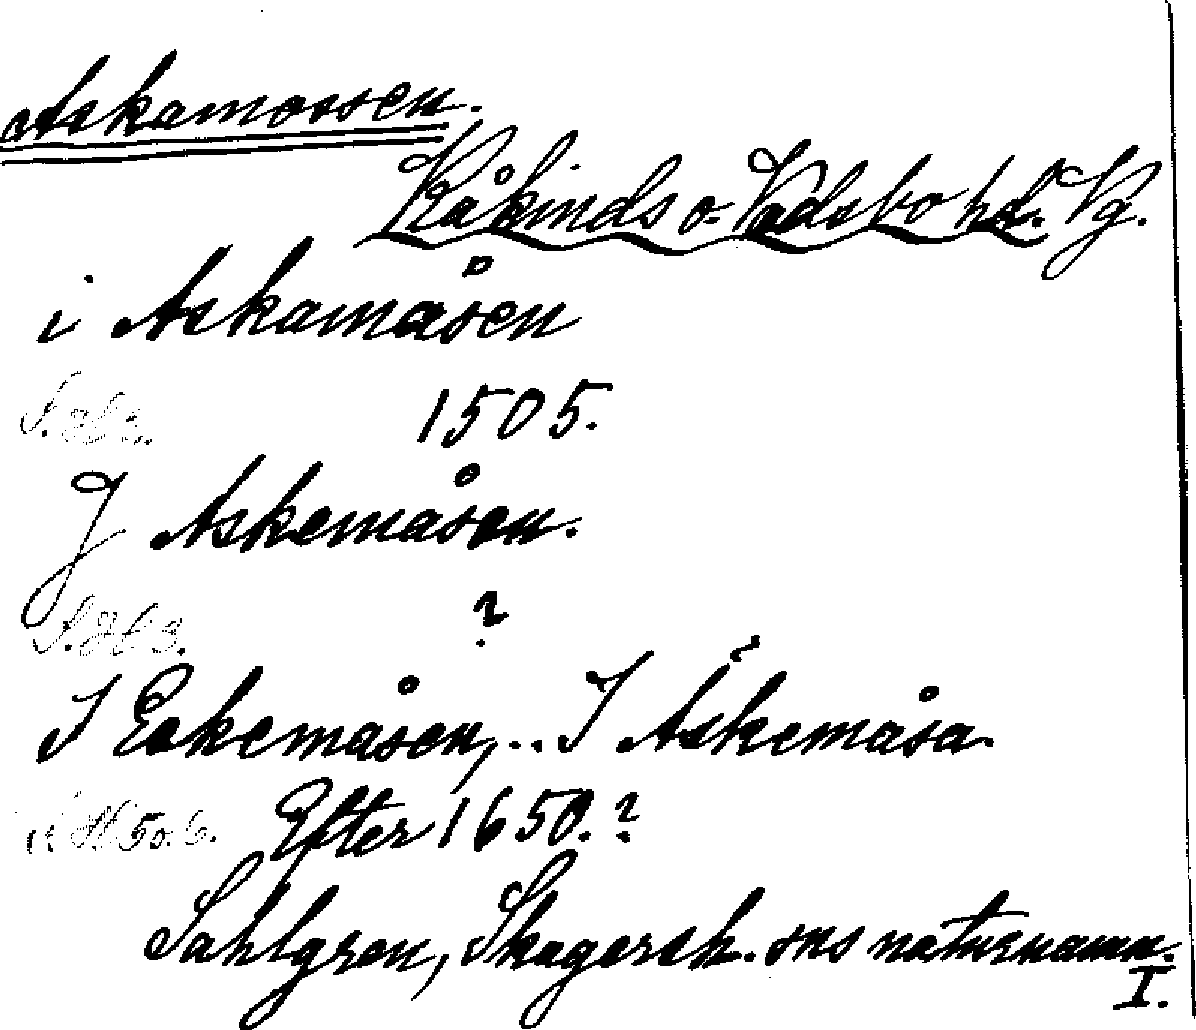 Askamossen.
Kåkinds o. Vadsbo hd. Vg.
i Askamåsen
1505.
J Askemåsen.
?
I Eskemåsen,... I Askemåsa.
Efter 1650.?
Sahlgren, Skagersh. sns naturnamn.
I.